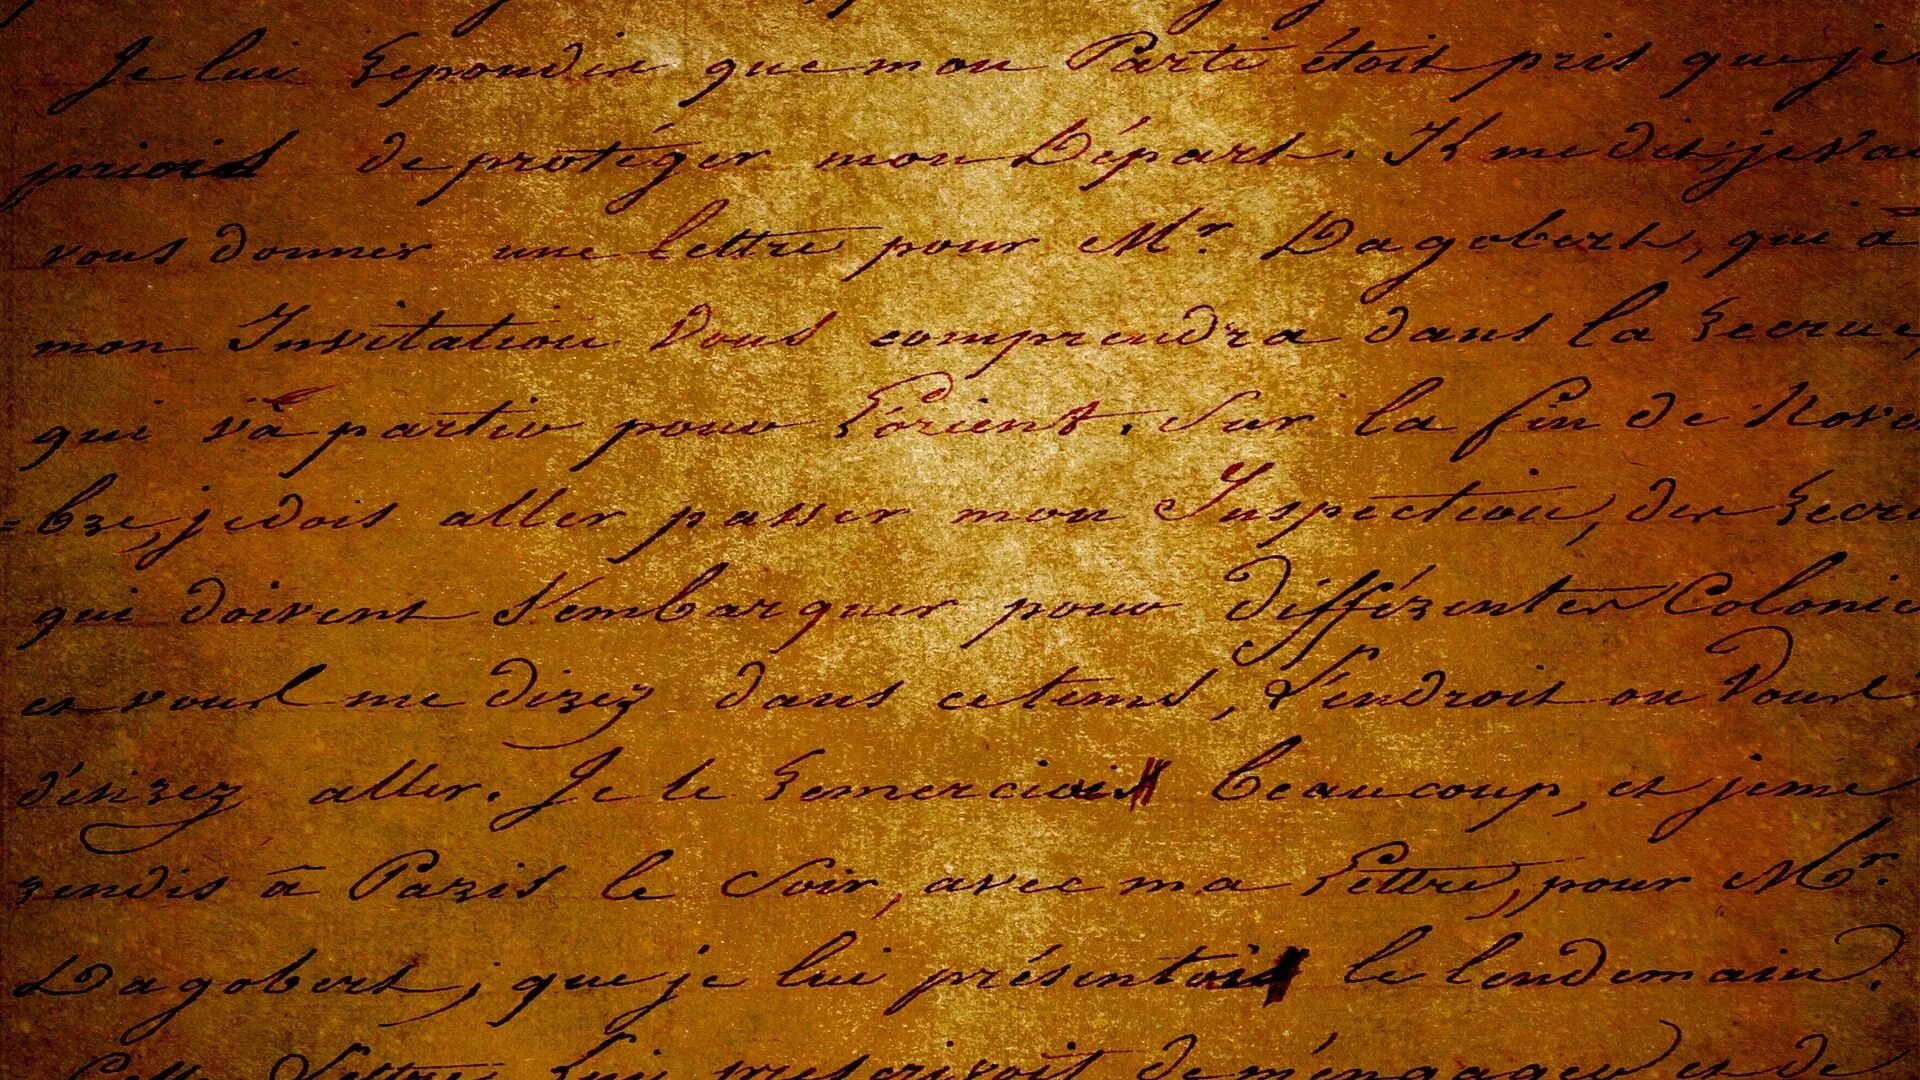 Je lui Répondis que mon Parti étoit pris que je
priois de protéger mon Départ. Il me dit, je vai
vous donner une lettre pour Mr. Dagobert, qui à
mon Invitation vous comprendra dans la Recrue,
qui và partir pour L'orient. Sur la fin de Nove
=bre, je dois aller passer mon Inspection, des Recru
qui doivent s'embarquer pour différentes Colonie
et vous me direz dans ce tems, L'endroit ou vous
désirez aller. Je le Remerciai beaucoup, et je me
rendis à Paris le Soir, avec ma Lettre, pour Mr.
Dagobert, que je lui présentai le lendemain.
Cette Lettre Lui prescrivoit de ménager et de